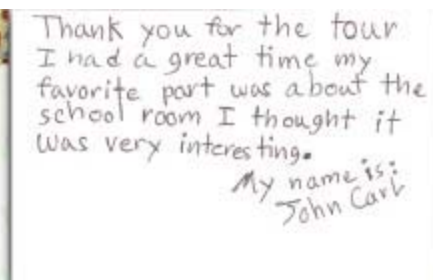 Thank you for the tour
I had a great time my
favorite part was about the
school room I thought it
was very interesting.
My name is:
John Carl